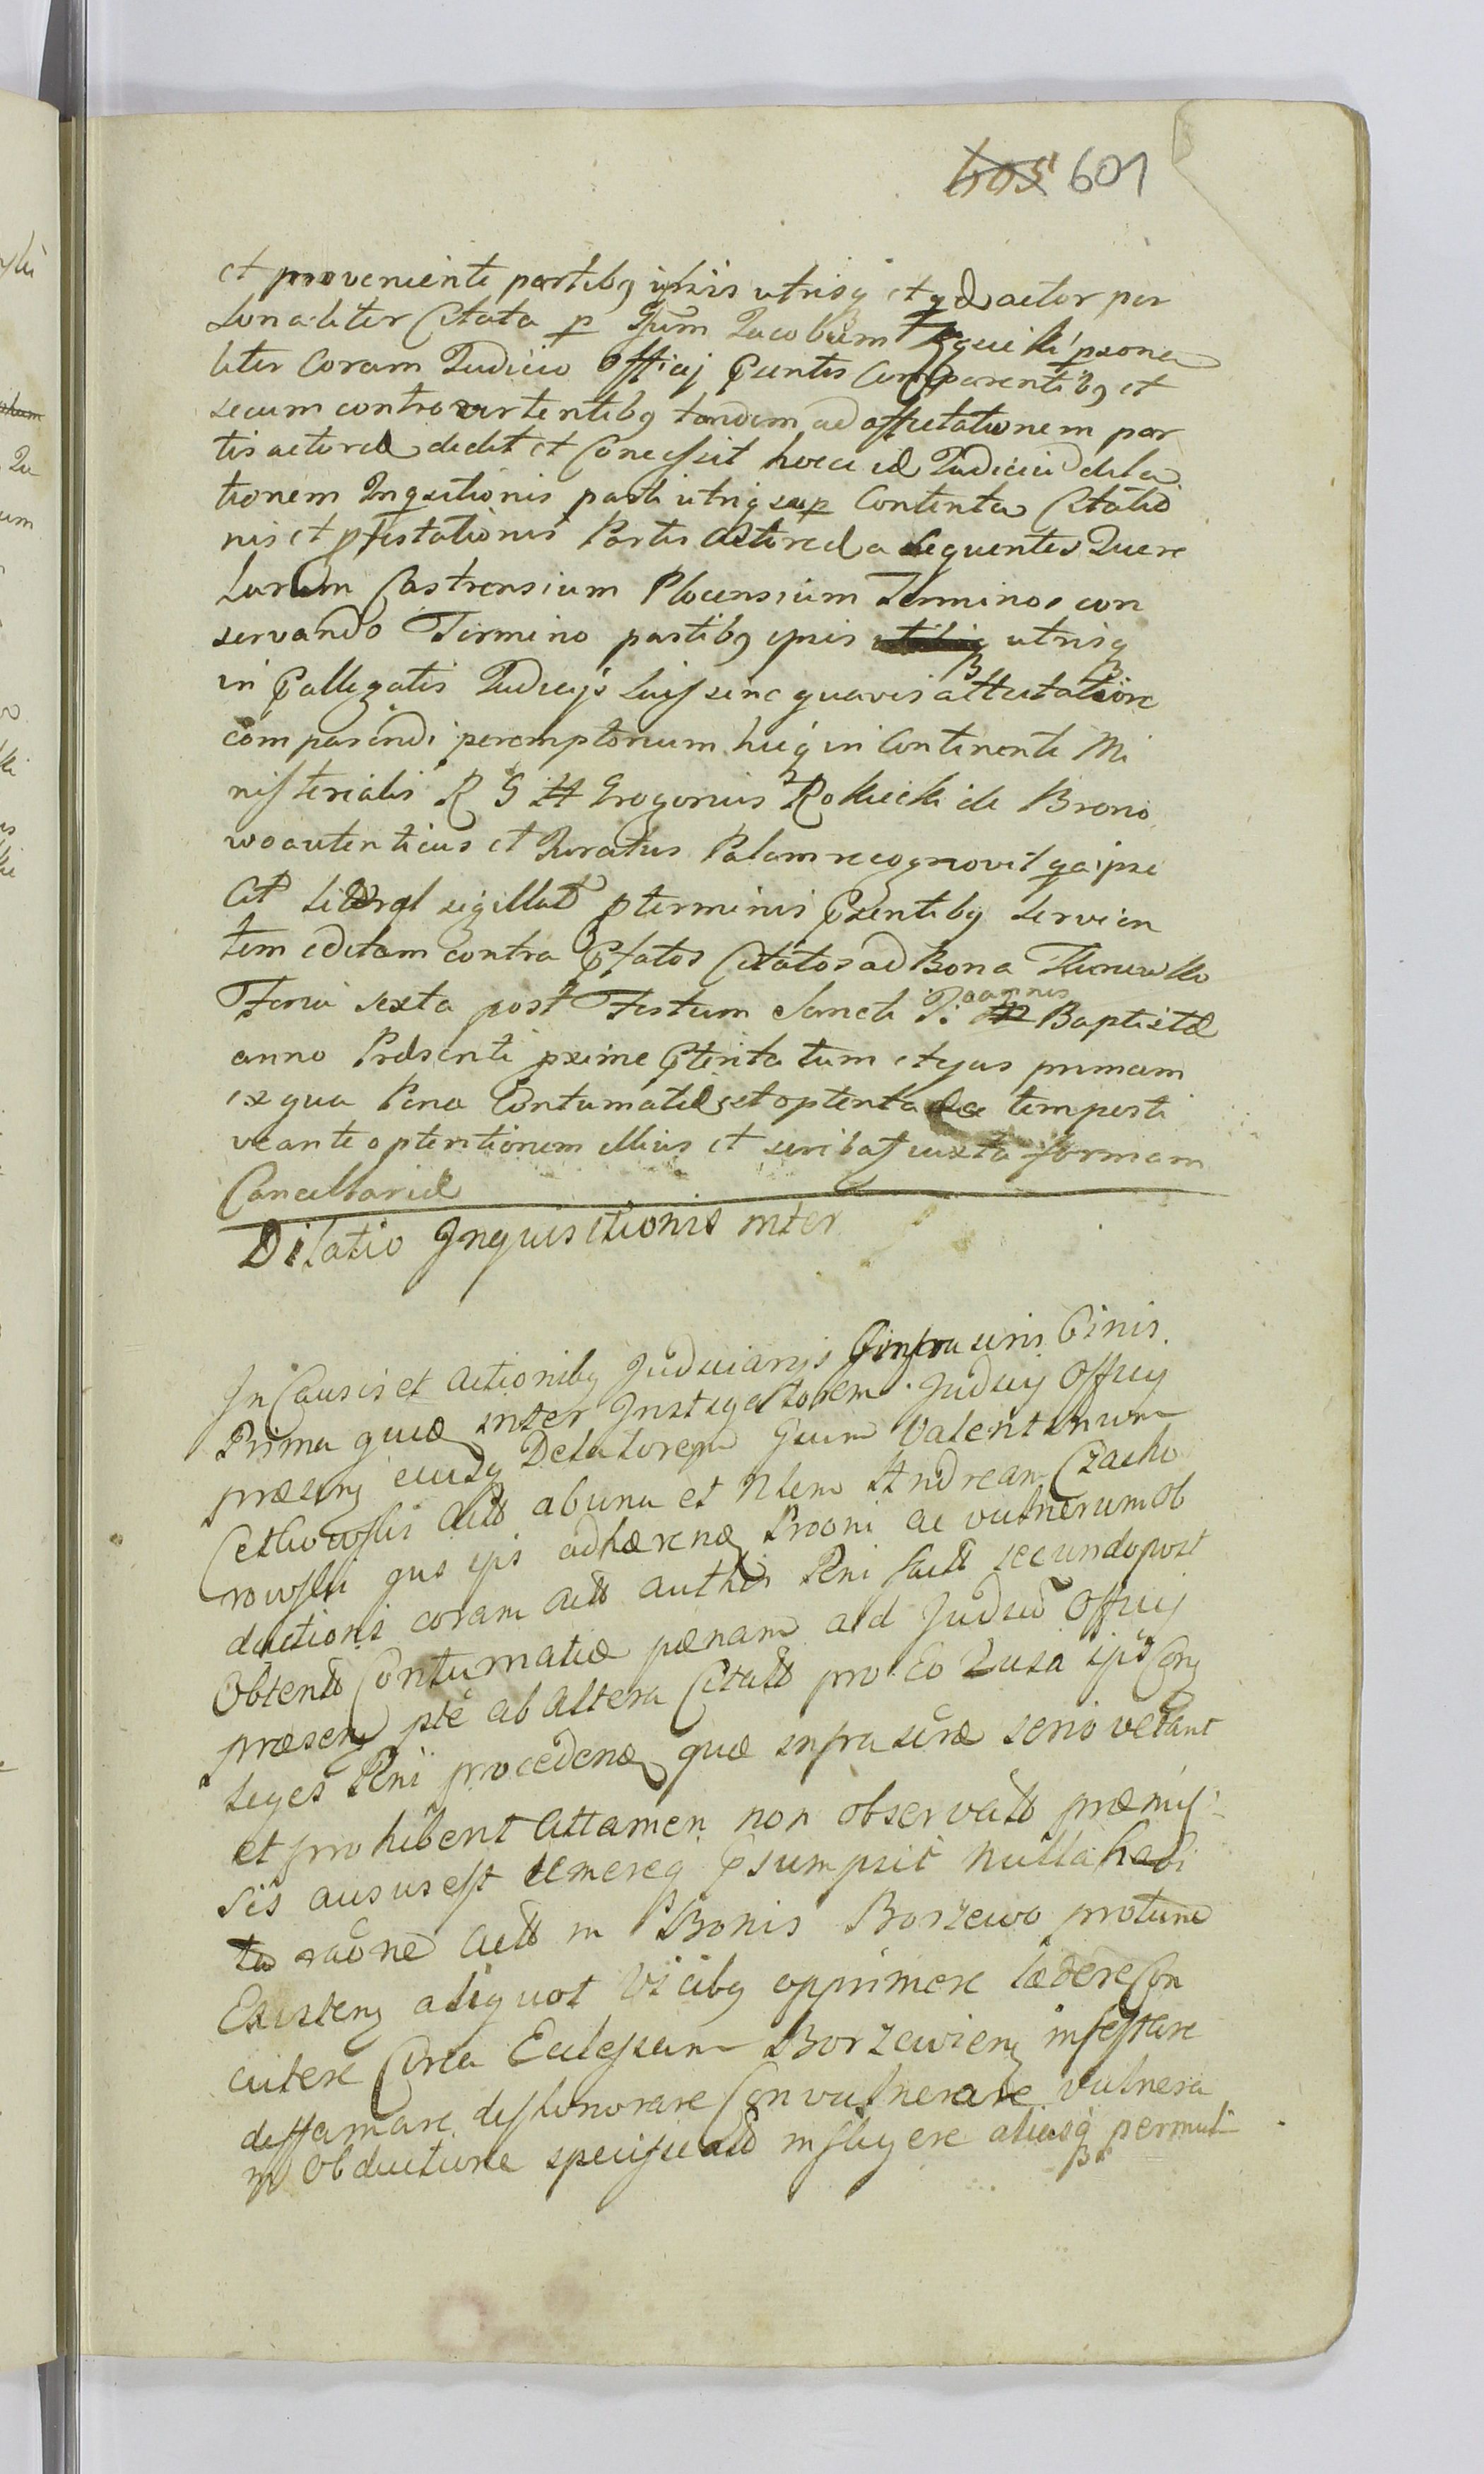 605 601
et proveniente partibq ipsis utrisq et qd actor per
sonaliter Citata p Gsum Jacobum psona
liter Coram Judicio Officij Psentis Comparentibq et
secum controvertentibq tandem ad affectationem par
tis actoreæ dedit et Concessit hocce id Judiciu dila
tionem Inqsitionis parti utriq sup Contenta Citatio
nis et ptestationis Partis Actoreæ a sequentes Quere
larum Castrensium Plocensium Terminos con
servando Termino partibq ipsis utrisq
in Pallegatis Judicijs suis sine quavis attentatione
comparendi peremptorium huiq in Continenti Mi
nisterialis R G H Gregorius Rokicki de Brono
wo autenticus et Juratus Palam recognovit qa ipse
Cit Literal sigillat p terminis Psentibq servien
tem editam contra Pfatos Citatos ad Bona
Feria sexta post Festum Sancti Joannis Baptistæ
anno Præsenti pxime Pterita tum etqas primam
ex qua Pena Contumatiæ set optenta tempesti
ve ante optentionem illius et scribat iuxta formam
Cancellariæ
Dilatio Inquisitionis inter
In Causis et Actionibq Judiciarijs infrascris Binis
Prima quæ inter Instigatorem Judicij Officij
præseng eiusq Delatorem Gsum Valentinum
Cetkowski Actt ab una et Nlem Andream Czacho
rowski qus ipi adhæreng Prooni ac vulnerum ob
ductioni coram Actt authis Rni factt secundo post
Obtentt Contumatiæ pænam ad Judiũ Officij
præseng pte ab altera Citatt pro Eo Quia ips Cong
Leges Rni procedeng quæ infrascræ serio vetant
et prohibent Attamen non observatt præmis
sis ausus est temereq Psumpsit nulla habi
ta raone Actt in Bonis Borzewo protunc
Existeng aliquot Vicibq opprimere lædere Con
cutere Circa Eclesiam Borzewieng infestare
deffamare deshonorare Convulnerare vulnera
in Obductione specificatt infligere aliasq permul